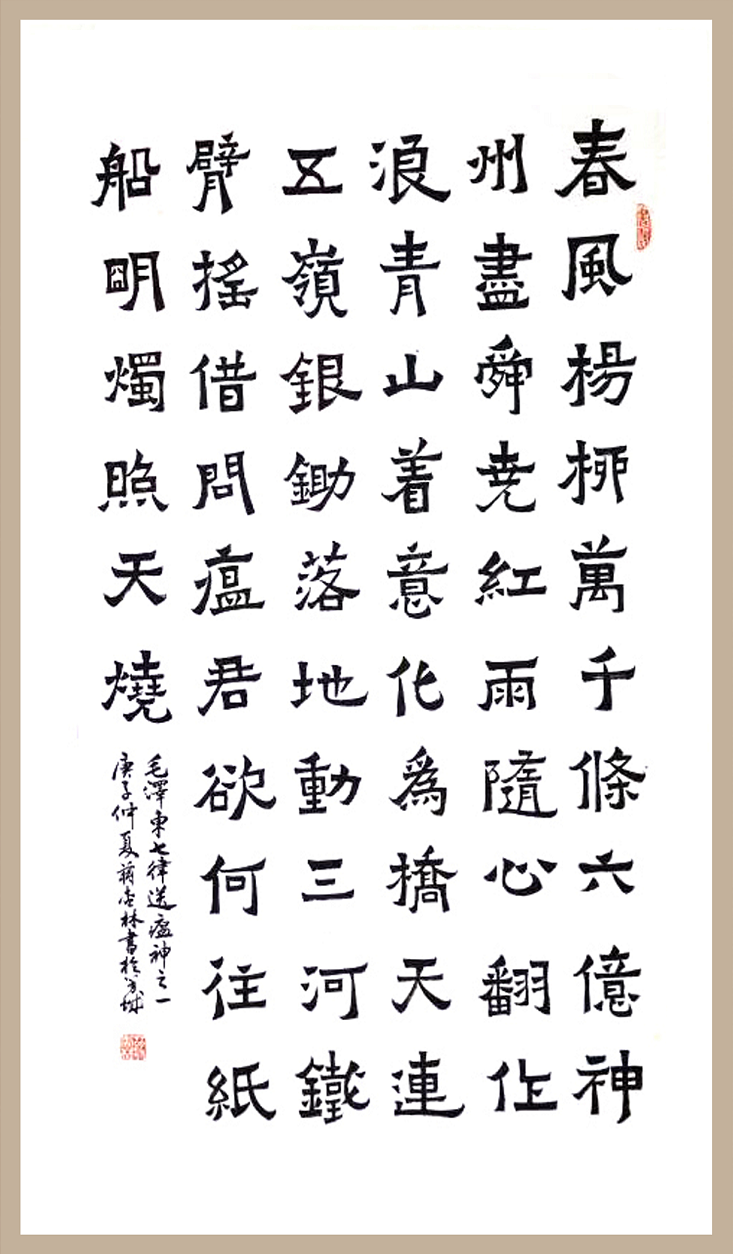 春風楊柳萬千條六億神
州盡舜尭紅雨隨心翻作
浪青山着意化為橋天連
五嶺銀鋤落地動三河鐵
臂搖借問瘟君欲何往紙
船明燭照天燒
毛澤東七律送瘟神之一
庚子仲夏蔣林書於城